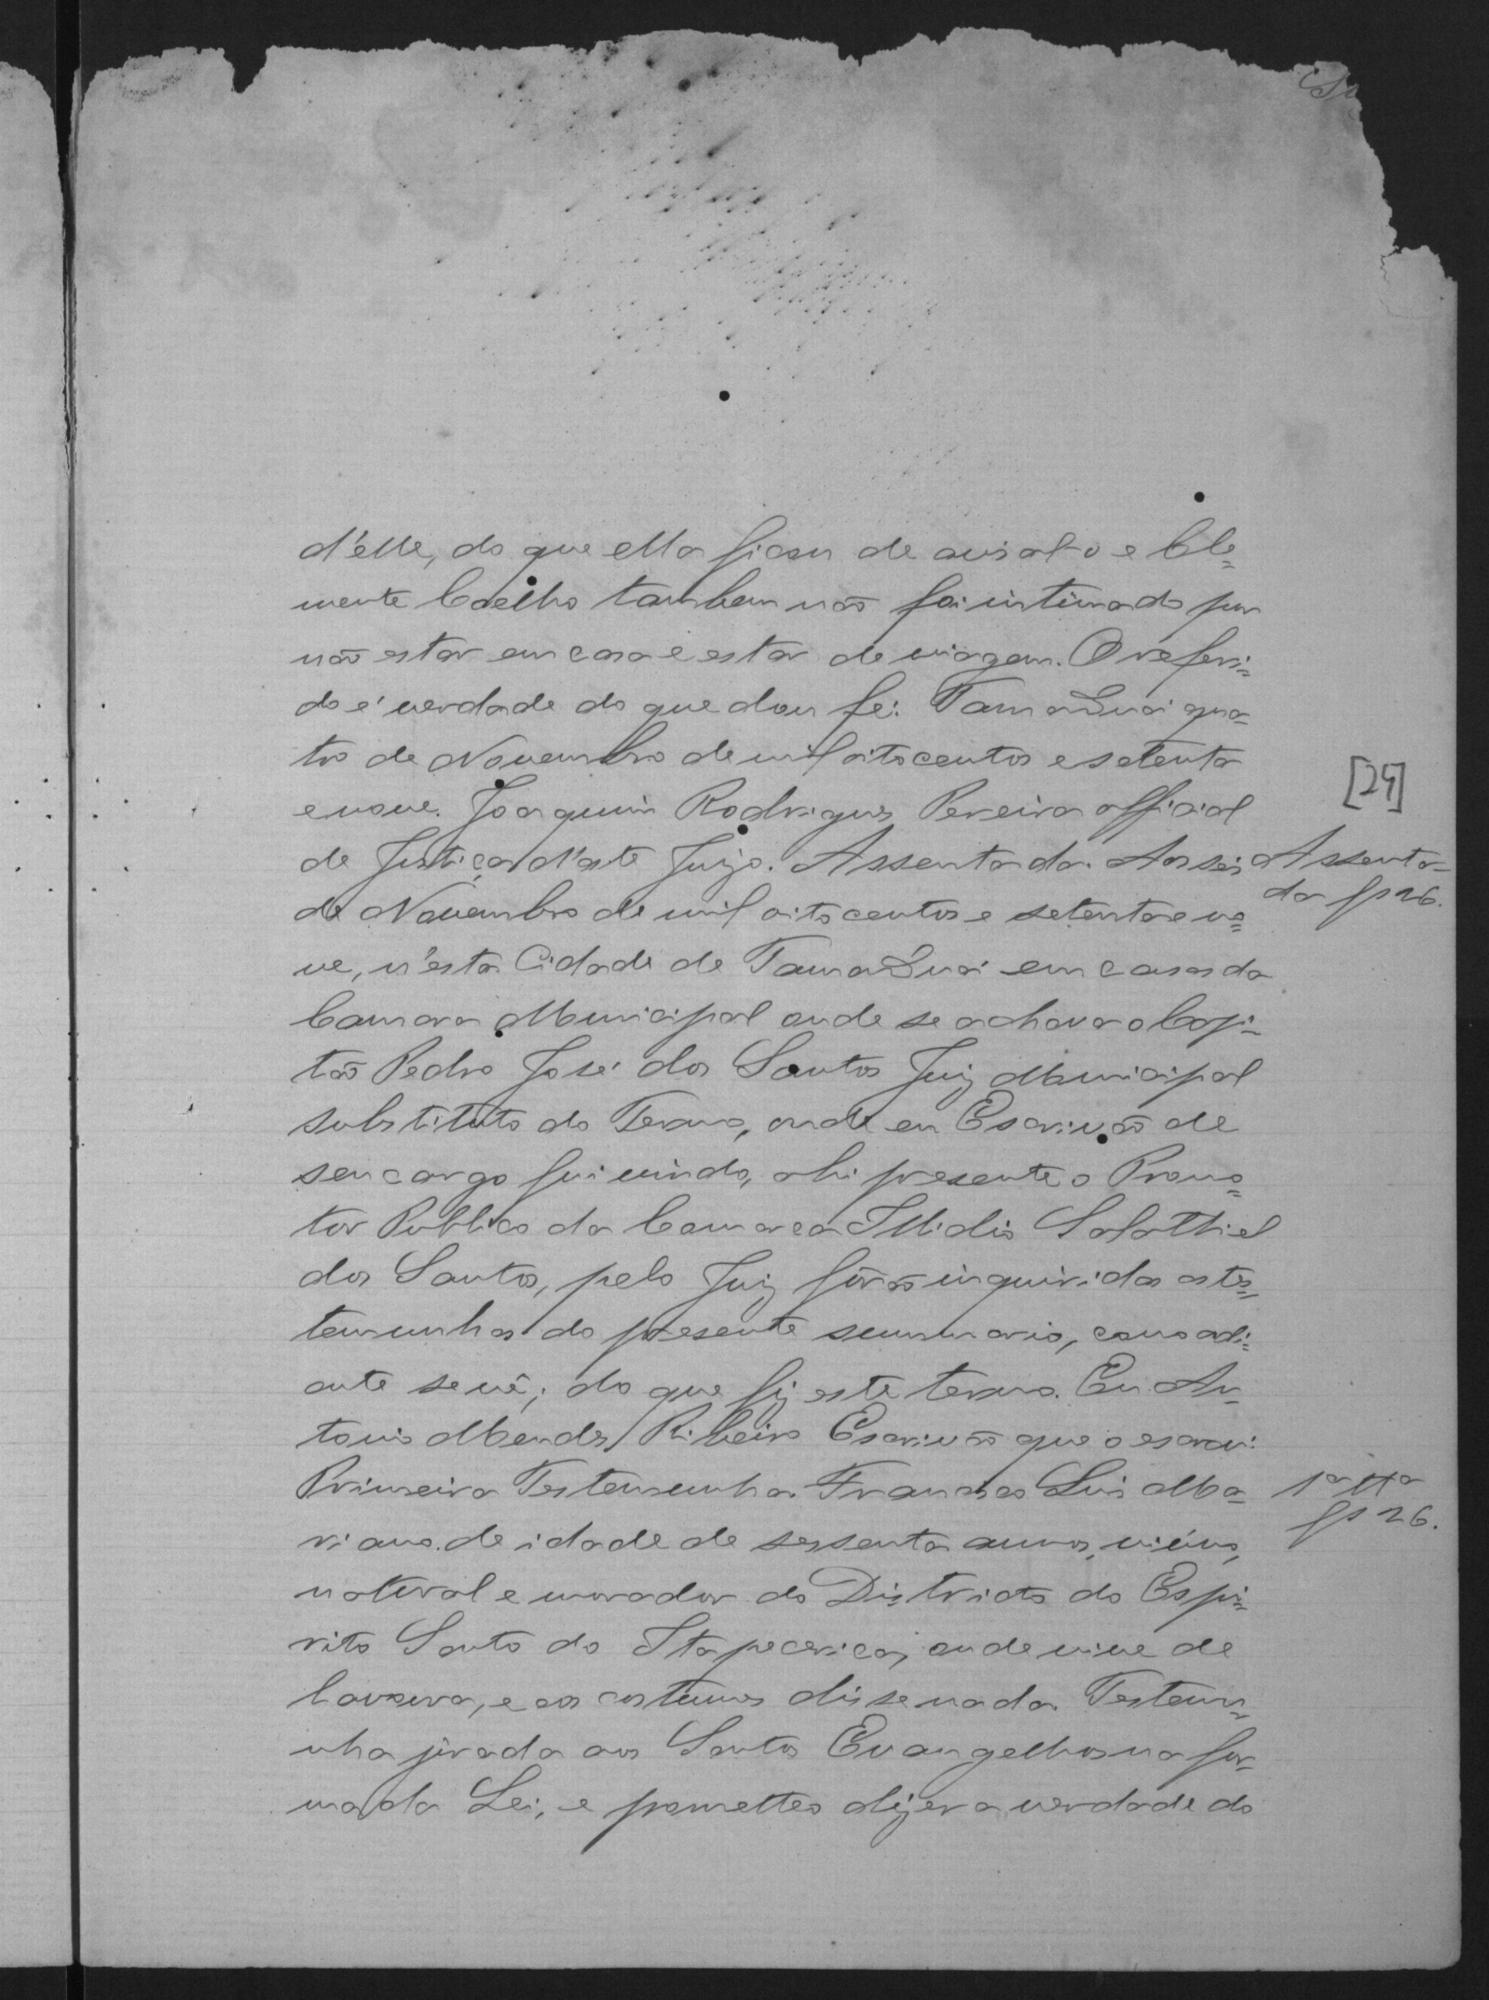 d'elle, do que ella ficou de avisal-o e Cle=
mente Coelho tambem não foi intimado por
não estar em casa e estar de viagem. O referi=
do é verdade do que dou fé. Tamanduá qua=
tro de Novembro de mil oitocentos e setenta
e nove. Joaquim Rodrigues Pereira official
de Justiça d'este Juizo. Assentada. Aos seis
Assenta=
da fs 26.
[24]
de Novembro de mil oitocentos e setenta e no=
ve, n'esta Cidade de Tamanduá em casas da
Camara Municipal onde se achava o Capi=
tão Pedro José dos Santos Juiz Municipal
substituto do Termo, onde eu Escrivão de
seu cargo fui vindo, ahi presente o Promo=
tor Publico da Comarca Illidio Salathiel
dos Santos, pelo Juiz fôrão inquiridas as tes=
temunhas do presente summario, como adi=
ante se vê; do que fiz este termo. Eu An=
tonio Mendes Ribeiro Escrivão que o escrevi.
Primeira Testemunha. Francisco Luis Ma=
1ª ttª
fs 26.
riano. de idade de sessenta annos, viúvo,
natural e morador do Districto do Espi=
rito Santo do Itapecerica, onde vive de
lavoura, e aos costumes disse nada. Testemu=
nha jurada aos Santos Evangelhos na for=
ma da Lei, e prometteo dizer a verdade do